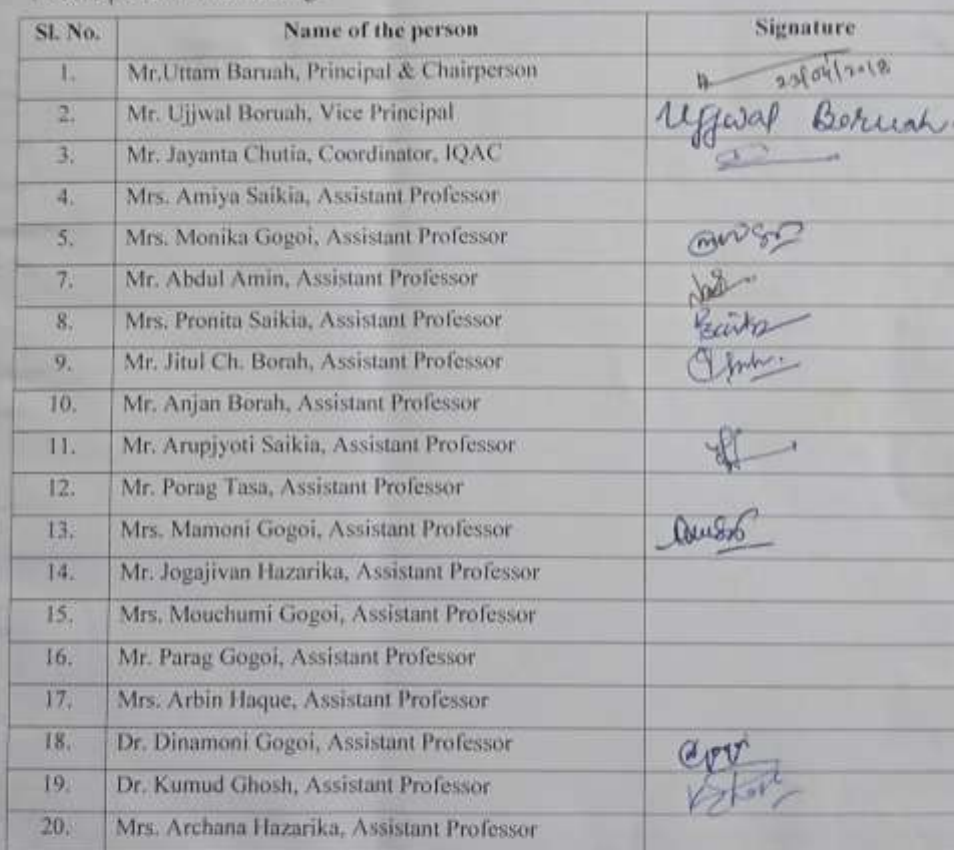 Sl. No. Name of the person Signature
1. Mr.Uttam Baruah, Principal & Chairperson 23/04/2018
2. Mr. Ujjwal Boruah, Vice Principal Ujjwal Boruah.
3. Mr. Jayanta Chutia, Coordinator, IQAC
4. Mrs. Amiya Saikia, Assistant Professor
5. Mrs. Monika Gogoi, Assistant Professor
7. Mr. Abdul Amin, Assistant Professor
8. Mrs. Pronita Saikia, Assistant Professor
9. Mr. Jitul Ch. Borah, Assistant Professor
10. Mr. Anjan Borah, Assistant Professor
11. Mr. Arupjyoti Saikia, Assistant Professor
12. Mr. Porag Tasa, Assistant Professor
13. Mrs. Mamoni Gogoi, Assistant Professor
14. Mr. Jogajivan Hazarika, Assistant Professor
15. Mrs. Mouchumi Gogoi, Assistant Professor
16. Mr. Parag Gogoi, Assistant Professor
17. Mrs. Arbin Haque, Assistant Professor
18. Dr. Dinamoni Gogoi, Assistant Professor
19. Dr. Kumud Ghosh, Assistant Professor
20. Mrs. Archana Hazarika, Assistant Professor